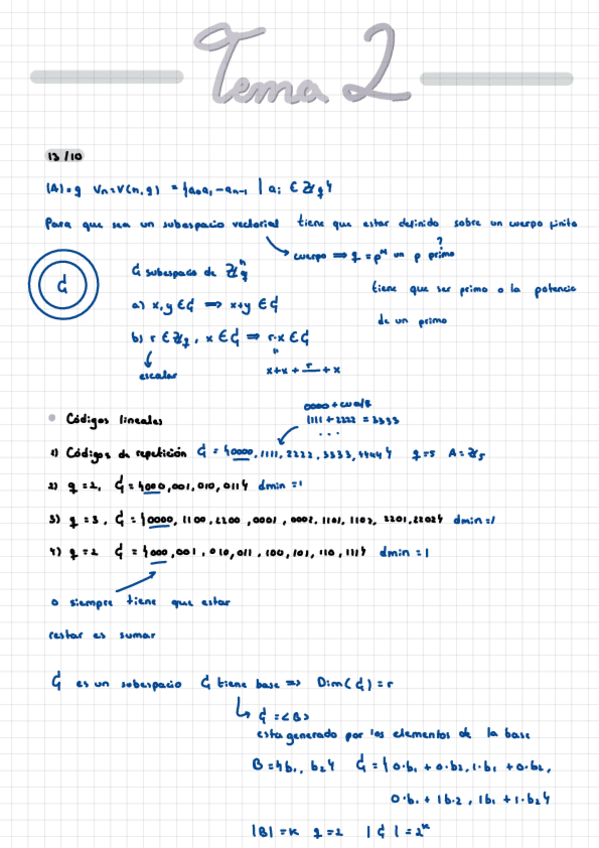 Tema 2
13/10
|A|=q Vn=V(n,q) = {a0a1-an-1 | ai ∈ Zq}
Para que sea un subespacio vectorial tiene que estar definido sobre un cuerpo finito
cuerpo ⇒ q = p^n un p primo
?
C
C subespacio de Zq^n
tiene que ser primo o la potencia
de un primo
a) x,y ∈ C ⇒ x+y ∈ C
b) r ∈ Zq, x ∈ C ⇒ r·x ∈ C
"
escalar
x+x+ r +x
• Códigos lineales
1111 + 2222 = 3333
...
1) Códigos de repetición C = {0000, 1111, 2222, 3333, 4444} q=5 A=Z5
2) q=2, C = {000, 001, 010, 011} dmin=1
3) q=3, C = {0000, 1100, 2200, 0001, 0002, 1101, 1102, 2201, 2202} dmin=1
4) q=2 C = {000, 001, 010, 011, 100, 101, 110, 111} dmin=1
0 siempre tiene que estar
restar es sumar
C es un subespacio C tiene base ⇒ Dim(C)=r
C = <B>
esta generado por los elementos de la base
B = {b1, b2} C = {0·b1 + 0·b2, 1·b1 + 0·b2,
0·b1 + 1b·2, 1b1 + 1·b2}
|B| = k q=2 |C| = 2^k